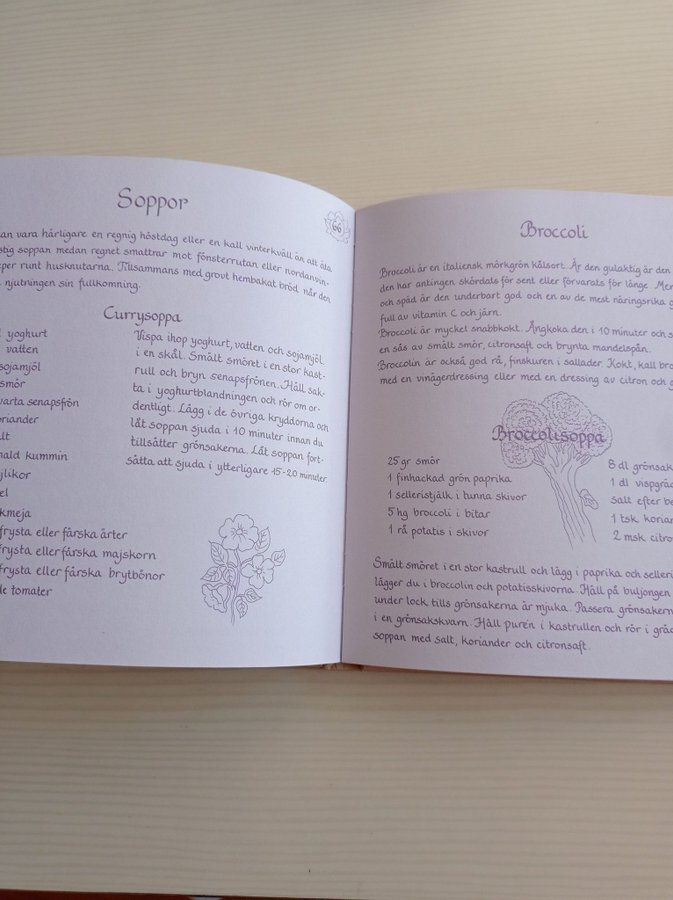 Soppor
66
an vara härligare en regnig höstdag eller en kall vinterkväll än att äta
stig soppan medan regnet smattrar mot fönsterrutan eller nordanvin-
per runt husknutarna. Tillsammans med grovt hembakat bröd når den
njutningen sin fullkomning.
Currysoppa
yoghurt
vatten
sojamjöl
smör
varta senapsfrön
oriander
alt
nald kummin
jlikor
el
kmeja
frysta eller färska ärter
frysta eller färska majskorn
frysta eller färska brytbönor
le tomater
Vispa ihop yoghurt, vatten och sojamjöl
i en skål. Smält smöret i en stor kast-
rull och bryn senapsfrönen. Häll sak-
ta i yoghurtblandningen och rör om or-
dentligt. Lägg i de övriga kryddorna och
låt soppan sjuda i 10 minuter innan du
tillsätter grönsakerna. Låt soppan fort-
sätta att sjuda i ytterligare 15-20 minuter
Broccoli
Broccoli är en italiensk mörkgrön kålsort. Är den gulaktig är den
den har antingen skördats för sent eller förvarats för länge. Men
och späd är den underbart god och en av de mest näringsrika g
full av vitamin C och järn.
Broccoli är mycket snabbkokt. Ångkoka den i 10 minuter och s
en sås av smält smör, citronsaft och brynta mandelspån.
Broccolin är också god rå, finskuren i sallader. Kokt, kall bro
med en vinägerdressing eller med en dressing av citron och g
Broccolisoppa
25 gr smör
1 finhackad grön paprika
1 selleristjälk i tunna skivor
5 hg broccoli i bitar
1 rå potatis i skivor
8 dl grönsak
1 dl vispgräd
salt efter be
1 tsk korian
2 msk citro
Smält smöret i en stor kastrull och lägg i paprika och selleri
lägger du i broccolin och potatisskivorna. Häll på buljongen
under lock tills grönsakerna är mjuka. Passera grönsakern
i en grönsakskvarn. Häll purén i kastrullen och rör i gräd
soppan med salt, koriander och citronsaft.